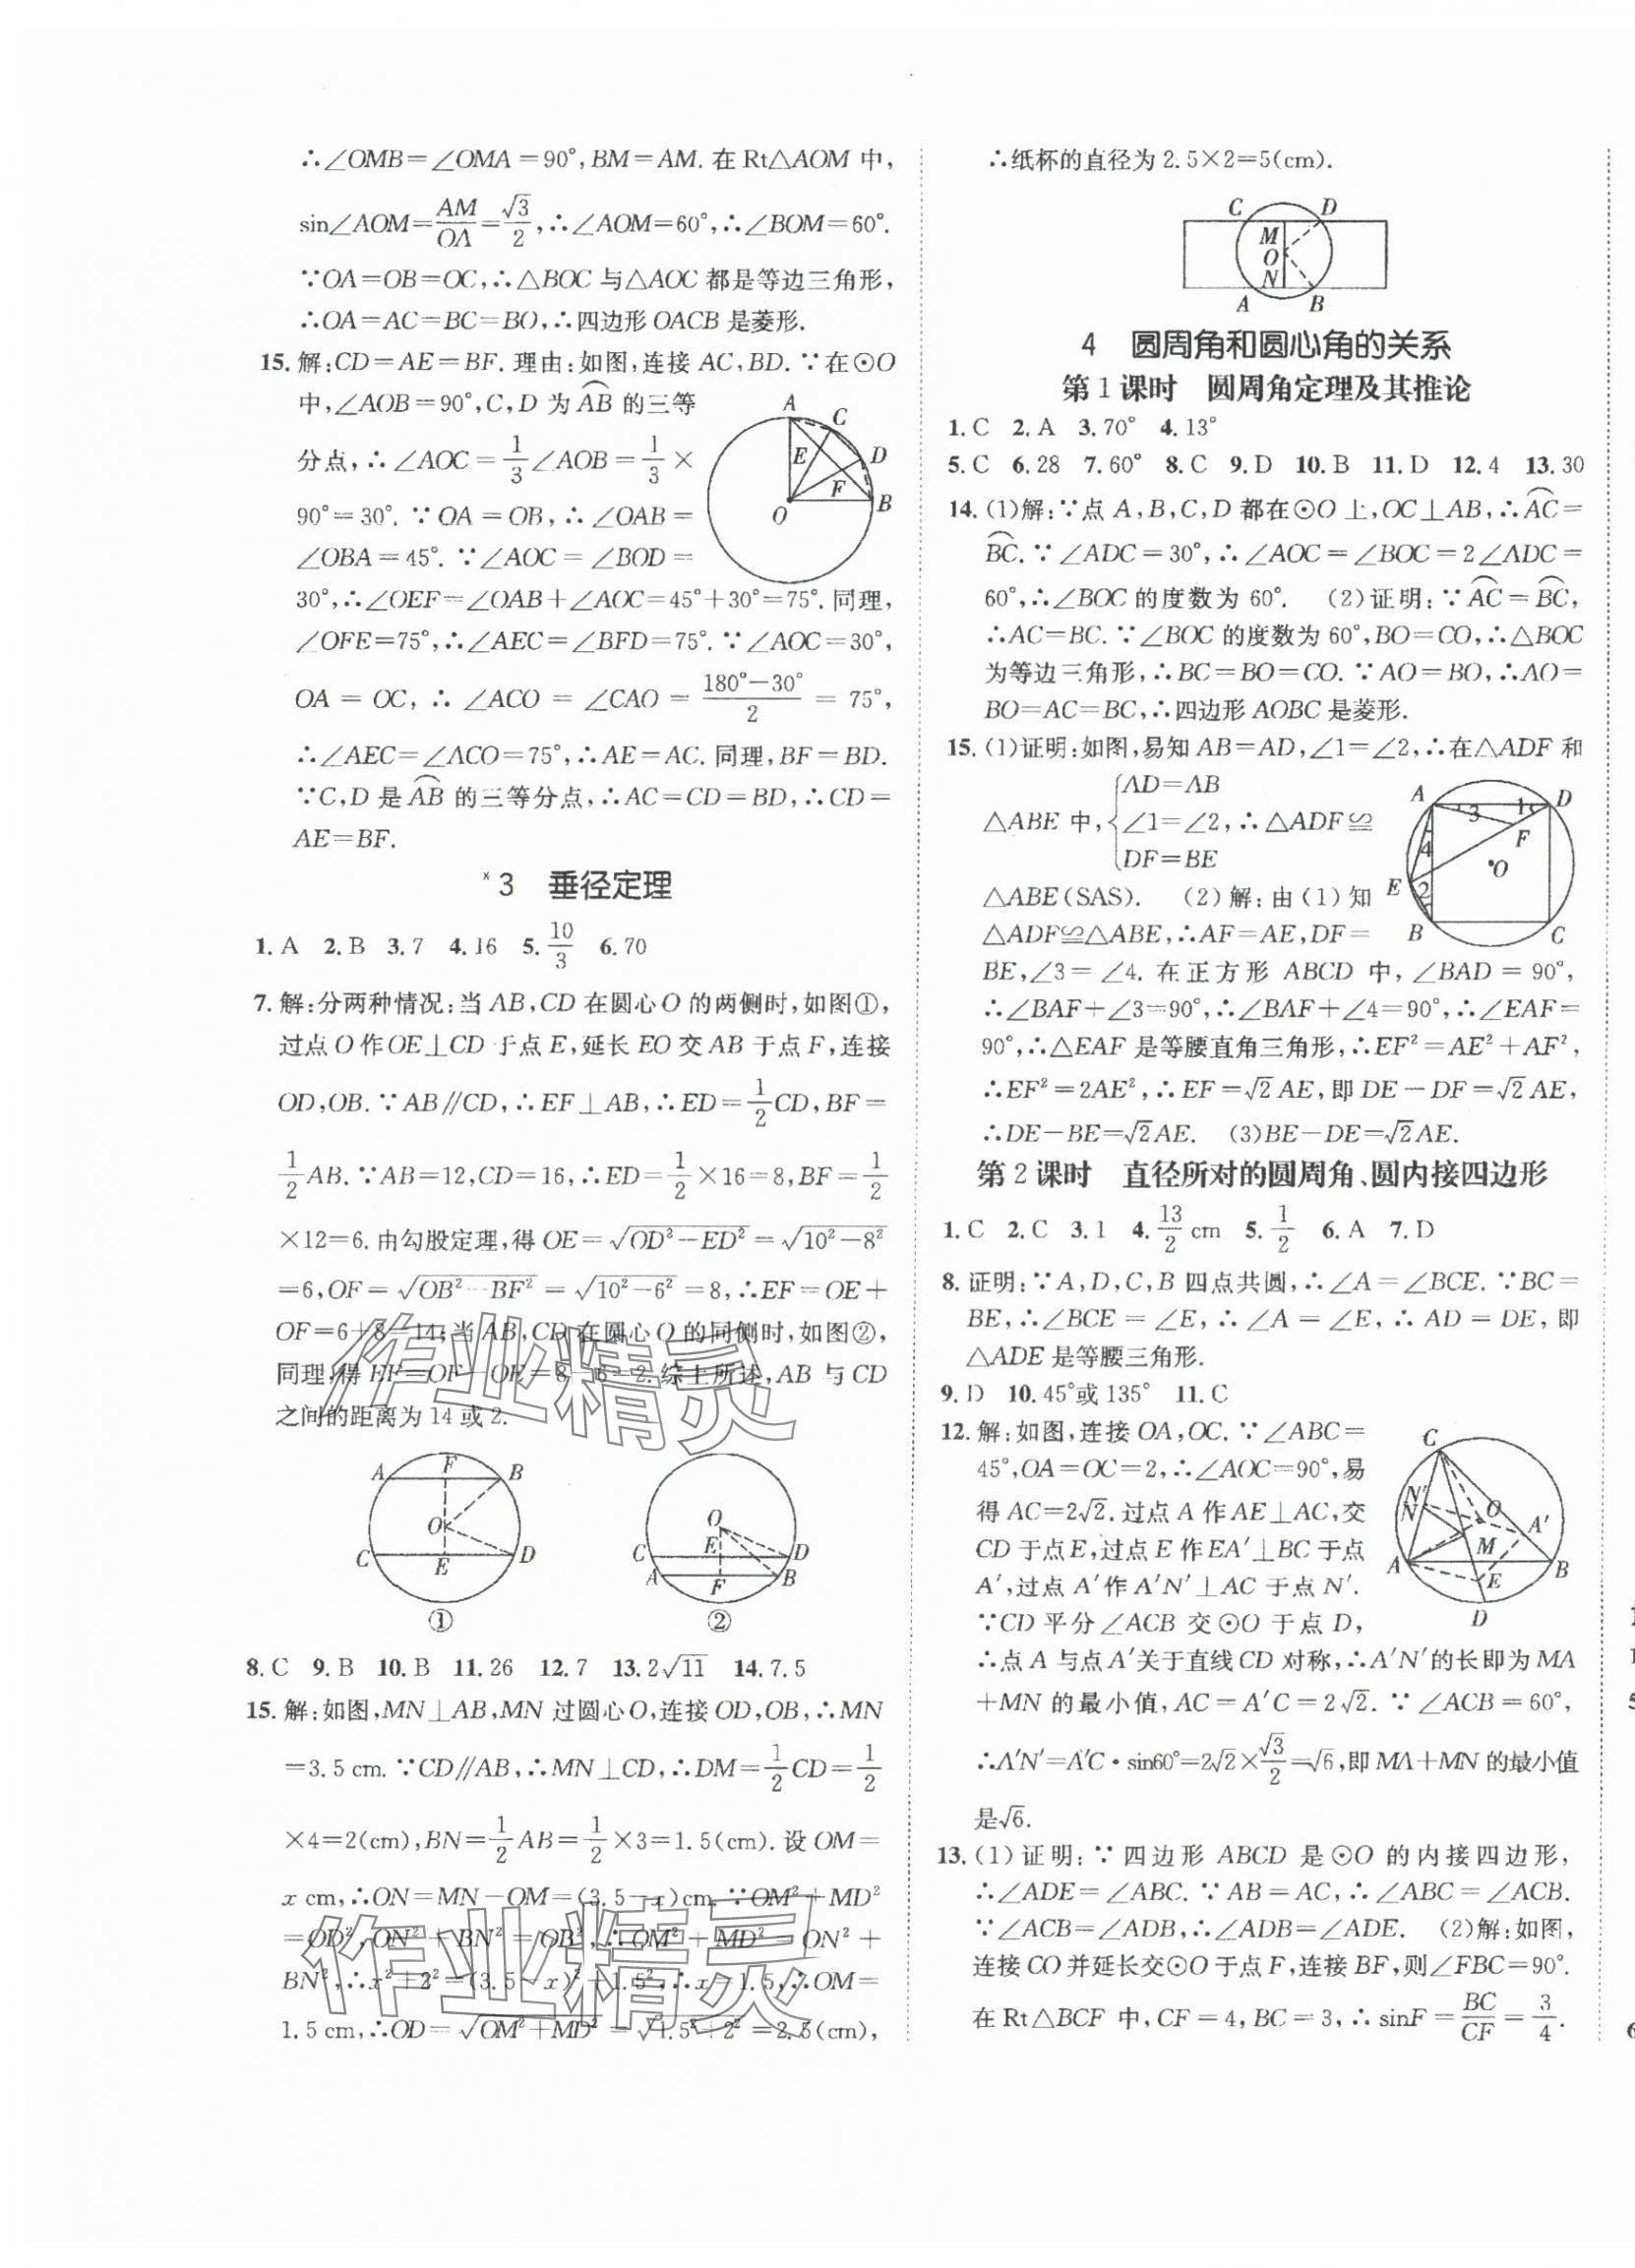 ∴∠OMB=∠OMA=90°,BM=AM.在Rt△AOM中,
sin∠AOM=AM/OA=√3/2,∴∠AOM=60°,∴∠BOM=60°.
∵OA=OB=OC,∴△BOC与△AOC都是等边三角形,
∴OA=AC=BC=BO,∴四边形OACB是菱形.
15.解:CD=AE=BF.理由:如图,连接AC,BD.∵在⊙O
中,∠AOB=90°,C,D为⌒AB的三等
分点,∴∠AOC=1/3∠AOB=1/3×
90°=30°.∵OA=OB,∴∠OAB=
∠OBA=45°.∵∠AOC=∠BOD=
30°,∴∠OEF=∠OAB+∠AOC=45°+30°=75°.同理,
∠OFE=75°,∴∠AEC=∠BFD=75°.∵∠AOC=30°,
OA=OC,∴∠ACO=∠CAO=(180°-30°)/2=75°,
∴∠AEC=∠ACO=75°,∴AE=AC.同理,BF=BD.
∵C,D是⌒AB的三等分点,∴AC=CD=BD,∴CD=
AE=BF.
A C E D F B O
*3 垂径定理
1.A 2.B 3.7 4.16 5.10/3 6.70
7.解:分两种情况:当AB,CD在圆心O的两侧时,如图①,
过点O作OE⊥CD于点E,延长EO交AB于点F,连接
OD,OB.∵AB∥CD,∴EF⊥AB,∴ED=1/2CD,BF=
1/2AB.∵AB=12,CD=16,∴ED=1/2×16=8,BF=1/2
×12=6.由勾股定理,得OE=√(OD²-ED²)=√(10²-8²)
=6,OF=√(OB²-BF²)=√(10²-6²)=8,∴EF=OE+
OF=6+8=14;当AB,CD在圆心O的同侧时,如图②,
同理,得EF=OF-OE=8-6=2.综上所述,AB与CD
之间的距离为14或2.
A F B O C E D ①
O E C D A F B ②
8.C 9.B 10.B 11.26 12.7 13.2√11 14.7.5
15.解:如图,MN⊥AB,MN过圆心O,连接OD,OB,∴MN
=3.5 cm.∵CD∥AB,∴MN⊥CD,∴DM=1/2CD=1/2
×4=2(cm),BN=1/2AB=1/2×3=1.5(cm).设OM=
x cm,∴ON=MN-OM=(3.5-x)cm.∵OM²+MD²
=OD²,ON²+BN²=OB²,∴OM²+MD²=ON²+
BN²,∴x²+2²=(3.5-x)²+1.5²,∴x=1.5,∴OM=
1.5 cm,∴OD=√(OM²+MD²)=√(1.5²+2²)=2.5(cm),
作业精灵
作业精灵
∴纸杯的直径为2.5×2=5(cm).
C D M O N A B
4 圆周角和圆心角的关系
第1课时 圆周角定理及其推论
1.C 2.A 3.70° 4.13°
5.C 6.28 7.60° 8.C 9.D 10.B 11.D 12.4 13.30
14.(1)解:∵点A,B,C,D都在⊙O上,OC⊥AB,∴⌒AC=
⌒BC.∵∠ADC=30°,∴∠AOC=∠BOC=2∠ADC=
60°,∴∠BOC的度数为60°. (2)证明:∵⌒AC=⌒BC,
∴AC=BC.∵∠BOC的度数为60°,BO=CO,∴△BOC
为等边三角形,∴BC=BO=CO.∵AO=BO,∴AO=
BO=AC=BC,∴四边形AOBC是菱形.
15.(1)证明:如图,易知AB=AD,∠1=∠2,∴在△ADF和
△ABE中,{AD=AB
∠1=∠2,∴△ADF≌
DF=BE
△ABE(SAS). (2)解:由(1)知
△ADF≌△ABE,∴AF=AE,DF=
BE,∠3=∠4.在正方形ABCD中,∠BAD=90°,
∴∠BAF+∠3=90°,∴∠BAF+∠4=90°,∴∠EAF=
90°,∴△EAF是等腰直角三角形,∴EF²=AE²+AF²,
∴EF²=2AE²,∴EF=√2AE,即DE-DF=√2AE,
∴DE-BE=√2AE. (3)BE-DE=√2AE.
A 3 1 D F 4 O E 2 B C
第2课时 直径所对的圆周角、圆内接四边形
1.C 2.C 3.1 4.13/2 cm 5.1/2 6.A 7.D
8.证明:∵A,D,C,B四点共圆,∴∠A=∠BCE.∵BC=
BE,∴∠BCE=∠E,∴∠A=∠E,∴AD=DE,即
△ADE是等腰三角形.
9.D 10.45°或135° 11.C
12.解:如图,连接OA,OC.∵∠ABC=
45°,OA=OC=2,∴∠AOC=90°,易
得AC=2√2.过点A作AE⊥AC,交
CD于点E,过点E作EA′⊥BC于点
A′,过点A′作A′N′⊥AC于点N′.
∵CD平分∠ACB交⊙O于点D,
∴点A与点A′关于直线CD对称,∴A′N′的长即为MA
+MN的最小值,AC=A′C=2√2.∵∠ACB=60°,
∴A′N′=A′C·sin60°=2√2×√3/2=√6,即MA+MN的最小值
是√6.
C N′ N O A′ M A B E D
13.(1)证明:∵四边形ABCD是⊙O的内接四边形,
∴∠ADE=∠ABC.∵AB=AC,∴∠ABC=∠ACB.
∵∠ACB=∠ADB,∴∠ADB=∠ADE. (2)解:如图,
连接CO并延长交⊙O于点F,连接BF,则∠FBC=90°.
在Rt△BCF中,CF=4,BC=3,∴sinF=BC/CF=3/4.